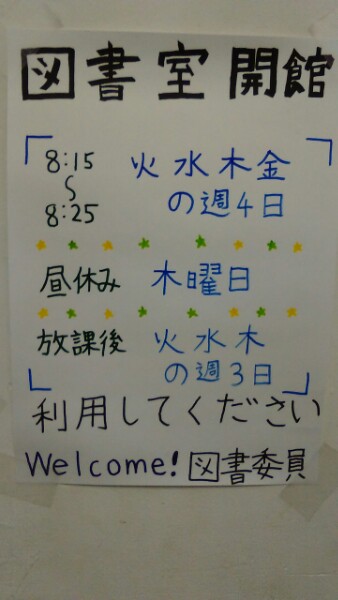 図書室開館
8:15 火水木金
〜 の週4日
8:25
昼休み 木曜日
放課後 火水木
の週3日
利用してください
Welcome! 図書委員